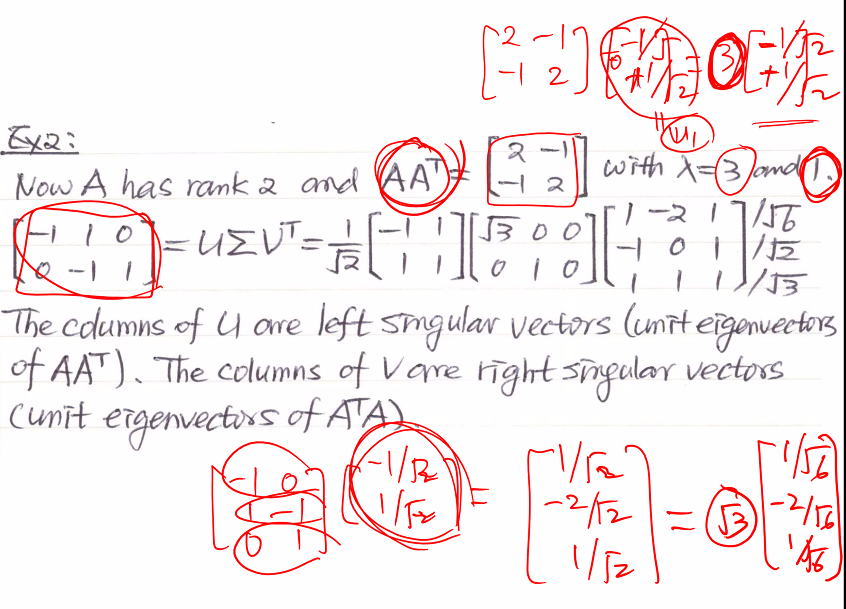 [2 -1; -1 2] [-1/√2; +1/√2] = 3 [-1/√2; +1/√2]
u₁
Ex2:
Now A has rank 2 and AAᵀ = [2 -1; -1 2] with λ=3 and 1.
[-1 1 0; 0 -1 1] = UΣVᵀ = 1/√2 [-1 1; 1 1] [√3 0 0; 0 1 0] [1 -2 1; -1 0 1; 1 1 1] /√6 /√2 /√3
The columns of U are left singular vectors (unit eigenvectors
of AAᵀ). The columns of V are right singular vectors
(unit eigenvectors of AᵀA)
[-1 0; 1 -1; 0 1] [-1/√2; 1/√2] = [1/√2; -2/√2; 1/√2] = √3 [1/√6; -2/√6; 1/√6]